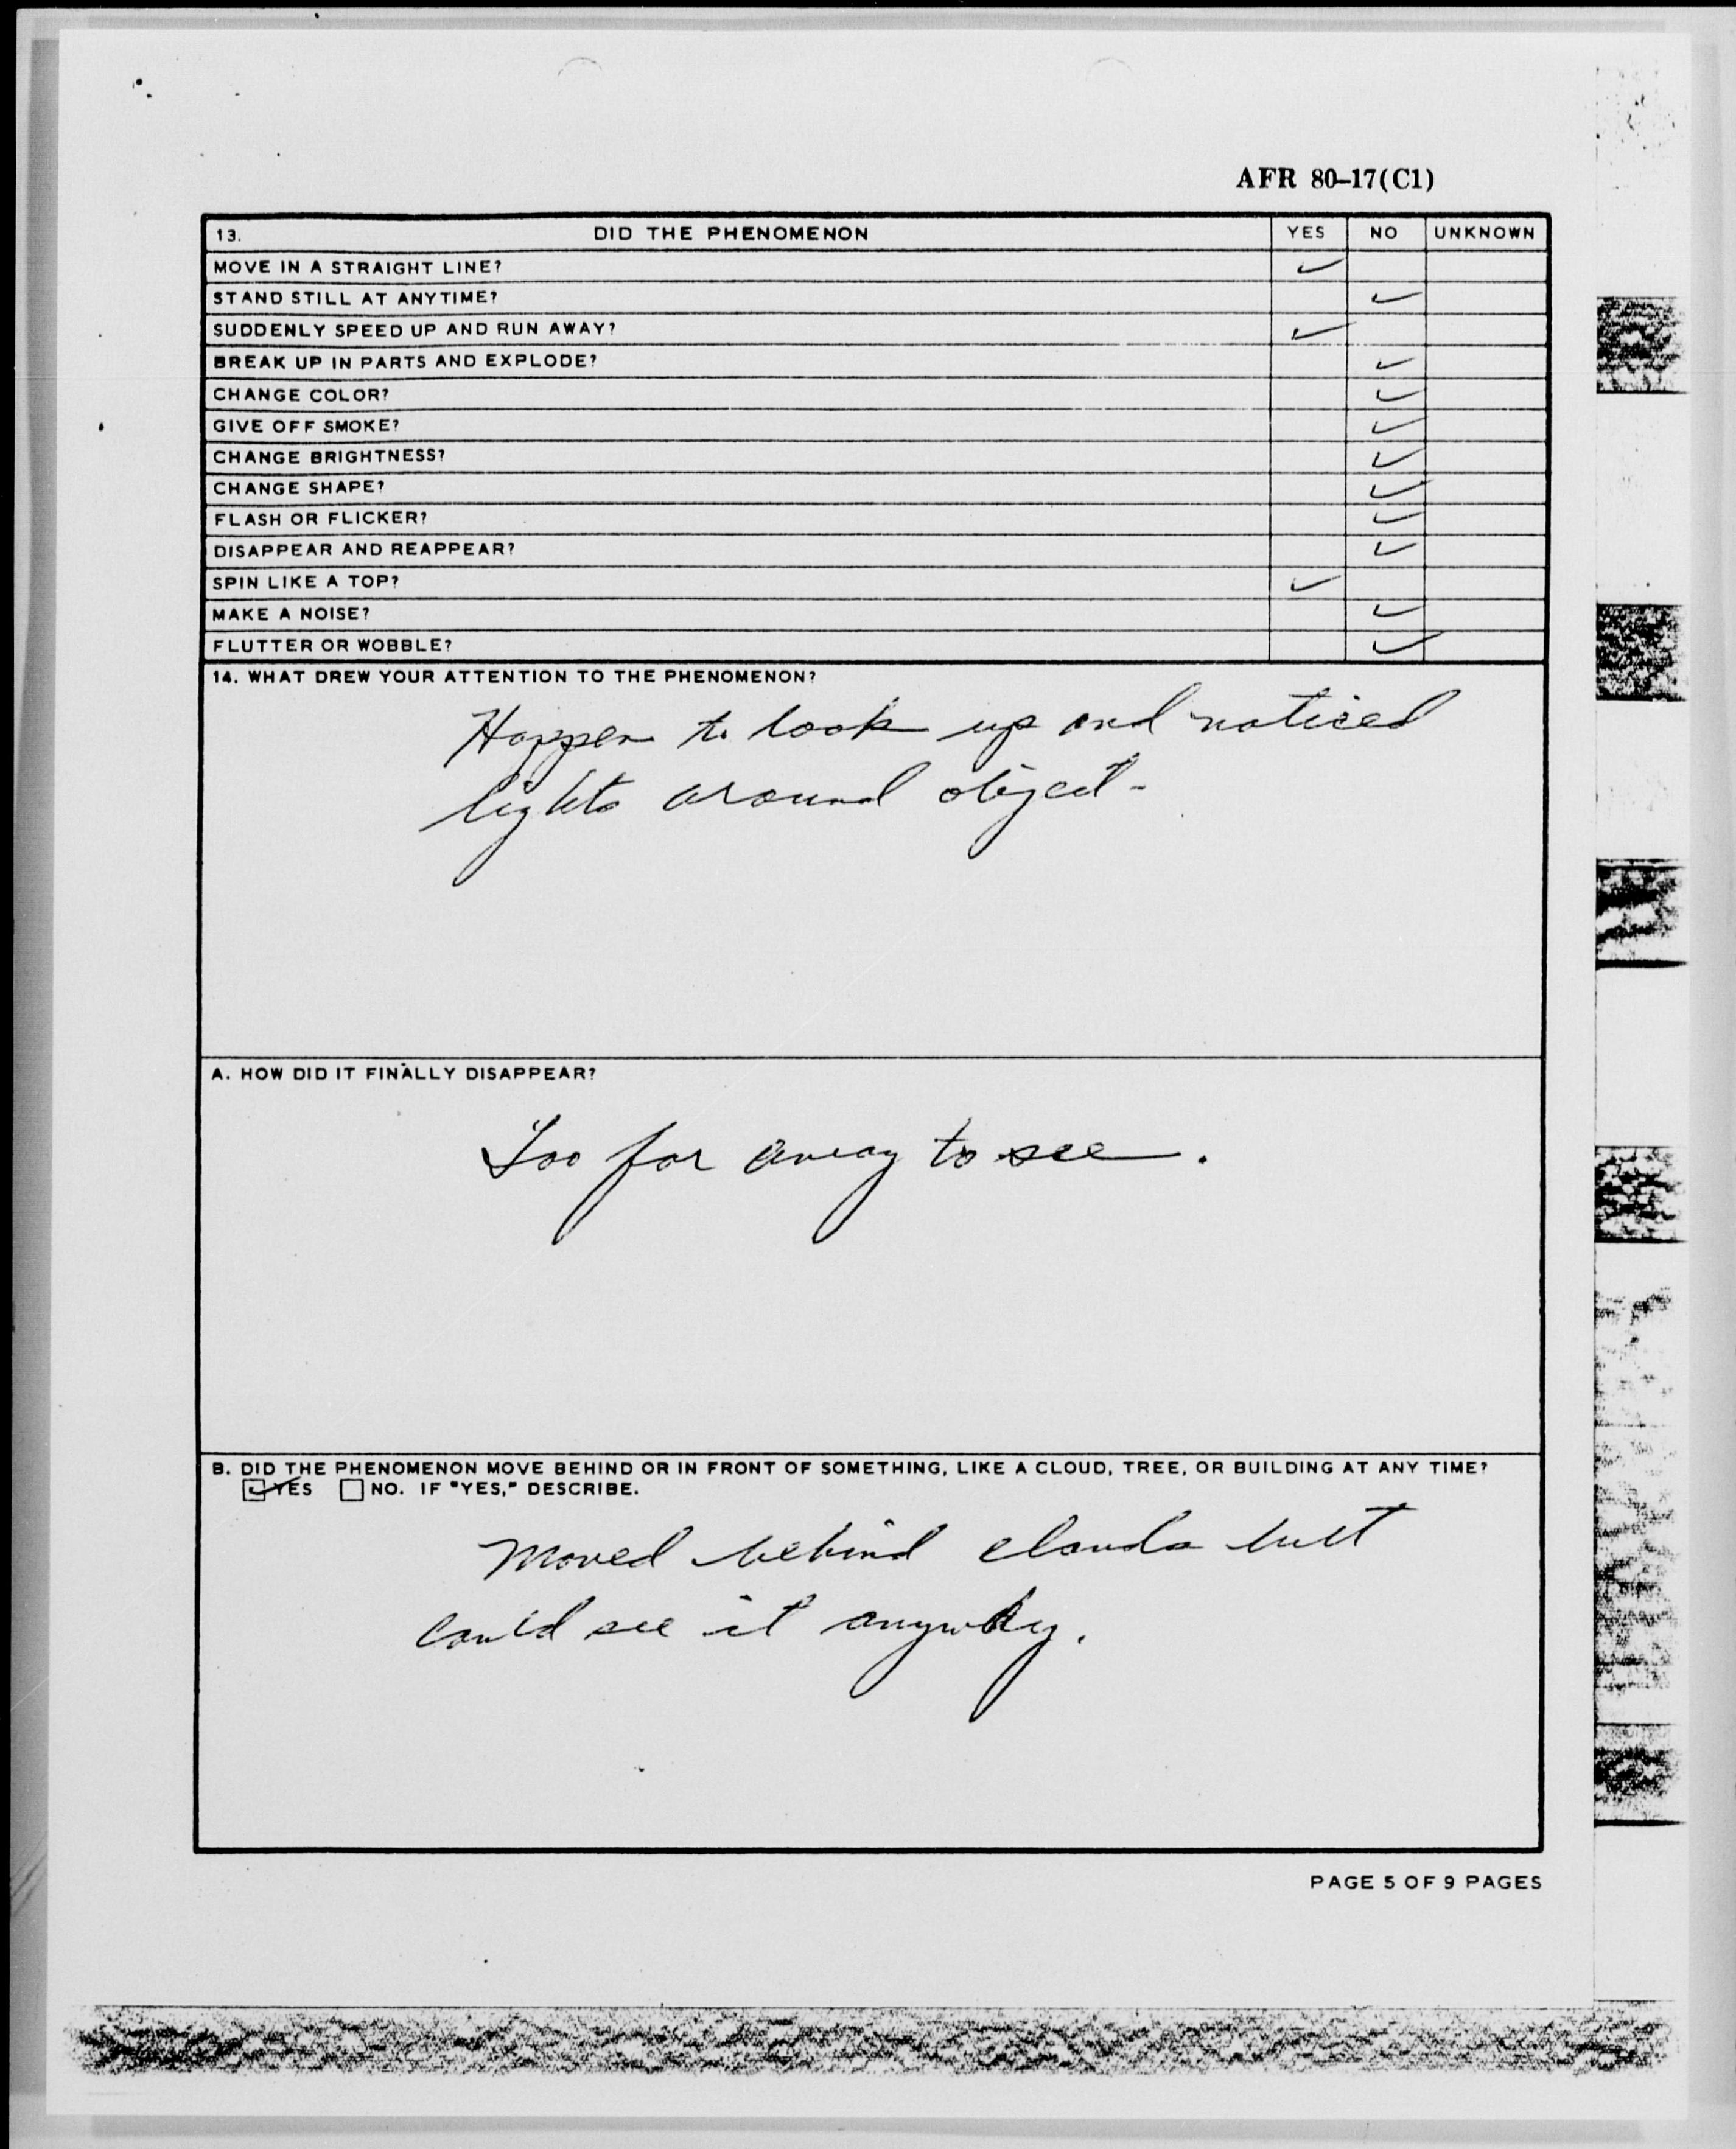 AFR 80-17(C1)
13. DID THE PHENOMENON YES NO UNKNOWN
MOVE IN A STRAIGHT LINE? ✓
STAND STILL AT ANYTIME? ✓
SUDDENLY SPEED UP AND RUN AWAY? ✓
BREAK UP IN PARTS AND EXPLODE? ✓
CHANGE COLOR? ✓
GIVE OFF SMOKE? ✓
CHANGE BRIGHTNESS? ✓
CHANGE SHAPE? ✓
FLASH OR FLICKER? ✓
DISAPPEAR AND REAPPEAR? ✓
SPIN LIKE A TOP? ✓
MAKE A NOISE? ✓
FLUTTER OR WOBBLE? ✓
14. WHAT DREW YOUR ATTENTION TO THE PHENOMENON?
Happen to look up and noticed
lights around object-
A. HOW DID IT FINALLY DISAPPEAR?
Too far away to see.
B. DID THE PHENOMENON MOVE BEHIND OR IN FRONT OF SOMETHING, LIKE A CLOUD, TREE, OR BUILDING AT ANY TIME?
☑ YES ☐ NO. IF "YES," DESCRIBE.
Moved behind clouds but
could see it anyway.
PAGE 5 OF 9 PAGES